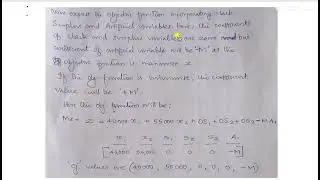 Now convert the objective function incorporating slack
Surplus and Artificial variables here, the components
of slack and surplus variables are zero and but
coefficient of artificial variable will be "-M" if the
objective function is maximise Z
If the obj function is minimise, the component
value will be "+M".
Hence the obj function will be:
Max Z = 40000 x₁ + 55000 x₂ + 0S₁ + 0S₂ + 0S₃ - MA₁
x₁ x₂ S₁ S₂ S₃ A₁
[40,000 55,000 0 0 0 -M]
'Cj' values are (40000, 55000, 0, 0, 0, -M)